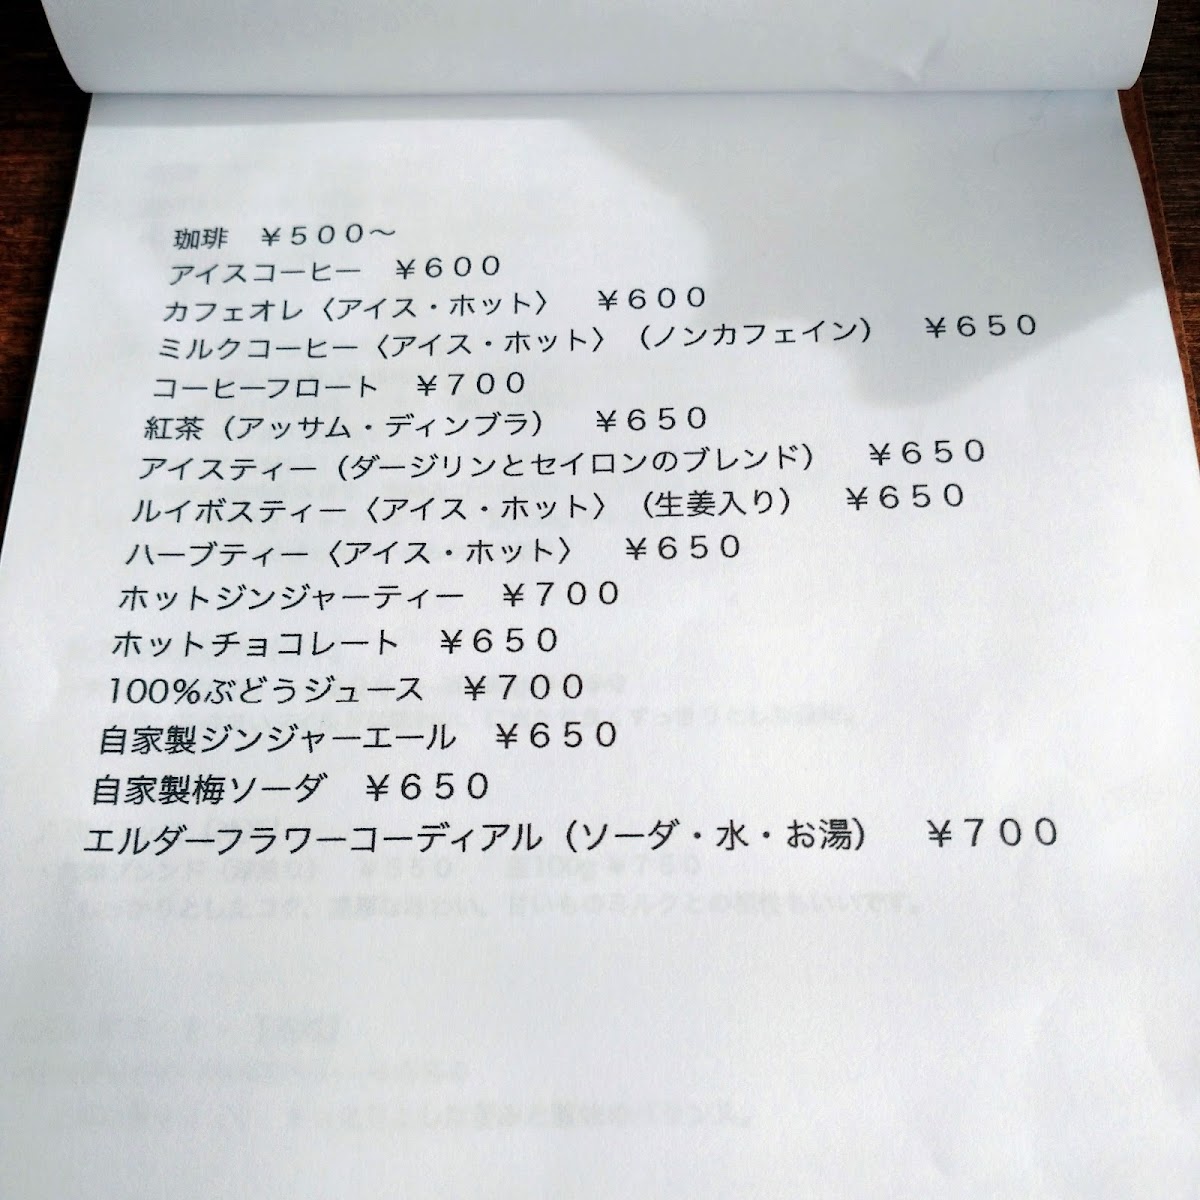 珈琲　￥５００～
アイスコーヒー　￥６００
カフェオレ〈アイス・ホット〉　￥６００
ミルクコーヒー〈アイス・ホット〉（ノンカフェイン）　￥６５０
コーヒーフロート　￥７００
紅茶（アッサム・ディンブラ）　￥６５０
アイスティー（ダージリンとセイロンのブレンド）　￥６５０
ルイボスティー〈アイス・ホット〉（生姜入り）　￥６５０
ハーブティー〈アイス・ホット〉　￥６５０
ホットジンジャーティー　￥７００
ホットチョコレート　￥６５０
100%ぶどうジュース　￥７００
自家製ジンジャーエール　￥６５０
自家製梅ソーダ　￥６５０
エルダーフラワーコーディアル（ソーダ・水・お湯）　￥７００